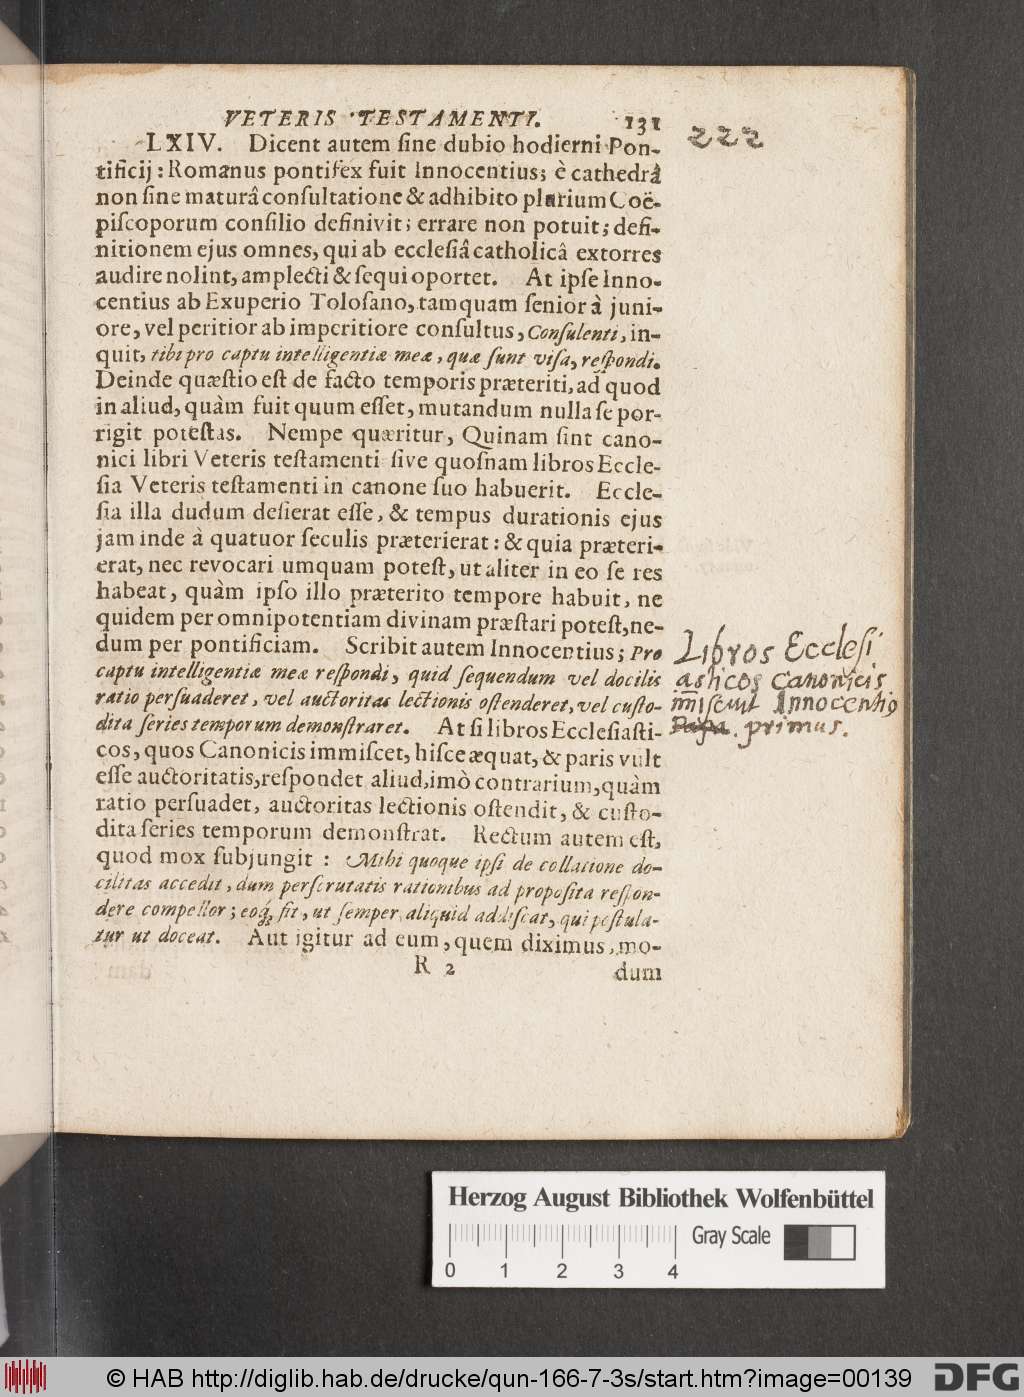 VETERIS TESTAMENTI. 131
222
LXIV. Dicent autem ſine dubio hodierni Pon-
tificij: Romanus pontifex fuit Innocentius; è cathedrâ
non ſine maturâ conſultatione & adhibito plurium Coë-
piſcoporum conſilio definivit; errare non potuit; defi-
nitionem ejus omnes, qui ab eccleſiâ catholicâ extorres
audire nolint, amplecti & ſequi oportet. At ipſe Inno-
centius ab Exuperio Toloſano, tamquam ſenior à juni-
ore, vel peritior ab imperitiore conſultus, Conſulenti, in-
quit, tibi pro captu intelligentiæ meæ, quæ ſunt viſa, reſpondi.
Deinde quæſtio eſt de facto temporis præteriti, ad quod
in aliud, quàm fuit quum eſſet, mutandum nulla ſe por-
rigit poteſtas. Nempe quæritur, Quinam ſint cano-
nici libri Veteris teſtamenti ſive quoſnam libros Eccle-
ſia Veteris teſtamenti in canone ſuo habuerit. Eccle-
ſia illa dudum deſierat eſſe, & tempus durationis ejus
jam inde à quatuor ſeculis præterierat: & quia præteri-
erat, nec revocari umquam poteſt, ut aliter in eo ſe res
habeat, quàm ipſo illo præterito tempore habuit, ne
quidem per omnipotentiam divinam præſtari poteſt, ne-
dum per pontificiam. Scribit autem Innocentius; Pro
captu intelligentiæ meæ reſpondi, quid ſequendum vel docilis
ratio perſuaderet, vel auctoritas lectionis oſtenderet, vel cuſto-
dita ſeries temporum demonſtraret. At ſi libros Eccleſiaſti-
cos, quos Canonicis immiſcet, hiſce æquat, & paris vult
eſſe auctoritatis, reſpondet aliud, imò contrarium, quàm
ratio perſuadet, auctoritas lectionis oſtendit, & cuſto-
dita ſeries temporum demonſtrat. Rectum autem eſt,
quod mox ſubjungit: Mihi quoque ipſi de collatione do-
cilitas accedit, dum perſcrutatis rationibus ad propoſita reſpon-
dere compellor; eoq́; fit, ut ſemper aliquid addiſcat, qui poſtula-
tur ut doceat. Aut igitur ad eum, quem diximus, mo-
R 2 dum
Libros Eccleſi
asticos Canonicis
im̅iscuit Innocentiꝰ
Papa. primus.
Herzog August Bibliothek Wolfenbüttel
0 1 2 3 4
Gray Scale
© HAB http://diglib.hab.de/drucke/qun-166-7-3s/start.htm?image=00139
DFG